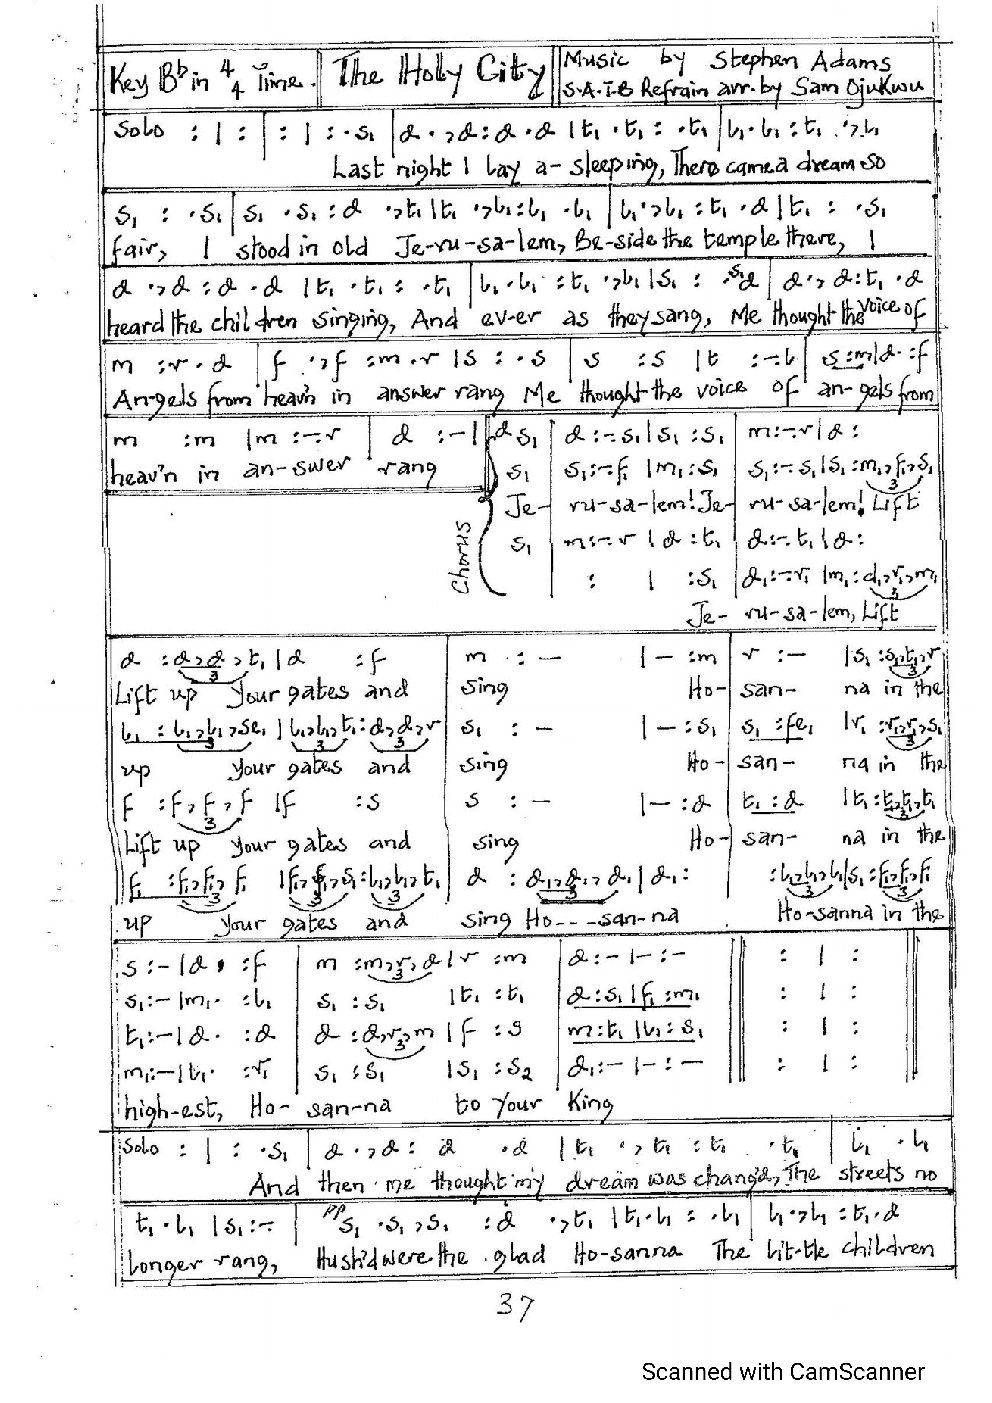 Key B♭ in 4/4 Time. The Holy City Music by Stephen Adams
S.A.T.B Refrain arr. by Sam Ojukwu
Solo : | : | : | : . s₁ | d . , d : d . d | t₁ . t₁ : . t₁ | l₁ . l₁ : t₁ . , l₁
Last night I lay a- sleeping, There came a dream so
s₁ : . s₁ | s₁ . s₁ : d . , t₁ | t₁ . , l₁ : l₁ . l₁ | l₁ . , l₁ : t₁ . d | t₁ : . s₁
fair, I stood in old Je-ru-sa-lem, Be-side the temple there, I
d . , d : d . d | t₁ . t₁ : . t₁ | l₁ . l₁ : t₁ . , l₁ | s₁ : . s₁d | d . , d : t₁ . d
heard the children singing, And ev-er as they sang, Me thought the voice of
m : r . d | f . , f : m . r | s : . s | s : s | t : - . l | s : m | d . : f
An-gels from heav'n in answer rang Me thought the voice of an-gels from
m : m | m : - . r | d : - | d s₁ | d : - . s₁ | s₁ : s₁ | m : - . r | d :
heav'n in an-swer rang
s₁ | s₁ : - . f₁ | m₁ : s₁ | s₁ : - . s₁ | s₁ : m₁ , f₁ , s₁
3
Je- ru-sa-lem! Je- ru-sa-lem! Lift
Chorus
s₁ | m : - . r | d : t₁ | d : - . t₁ | d :
: | : s₁ | d₁ : - . r₁ | m₁ : d₁ , r₁ , m₁
3
Je- ru-sa-lem, Lift
d : d , d , t₁ | d : f | m : - | - : m | r : - | s₁ : s₁ , t₁ , r
3 3
Lift up your gates and sing Ho- san- na in the
l₁ : l₁ , l₁ , se₁ | l₁ , l₁ , t₁ : d , d , r | s₁ : - | - : s₁ | s₁ : fe₁ | r₁ : r₁ , r₁ , s₁
3 3 3 3
up your gates and sing Ho- san- na in the
f : f , f , f | f : s | s : - | - : d | t₁ : d | t₁ : t₁ , t₁ , t₁
3 3
Lift up your gates and sing Ho- san- na in the
f₁ : f₁ , f₁ , f₁ | f₁ , f₁ , s₁ : l₁ , l₁ , t₁ | d : d₁ , d₁ , d₁ | d₁ : | : l₁ , l₁ , l₁ | s₁ : f₁ , f₁ , f₁
3 3 3 3 3 3
up your gates and sing Ho----san-na Ho-sanna in the
s : - | d . : f | m : m , r , d | r : m | d : - | - : - | : | :
3
s₁ : - | m₁ . : l₁ | s₁ : s₁ | t₁ : t₁ | d : s₁ | f₁ : m₁ | : | :
t₁ : - | d . : d | d : d , r , m | f : s | m : t₁ | l₁ : s₁ | : | :
3
m₁ : - | l₁ . : r₁ | s₁ : s₁ | s₁ : s₂ | d₁ : - | - : - | : | :
high-est, Ho- san-na to Your King
Solo : | : . s₁ | d . , d : d . d | t₁ . , t₁ : t₁ . t₁ | l₁ . l₁
And then me thought my dream was chang'd, The streets no
t₁ . l₁ | s₁ : - | pp s₁ . s₁ , s₁ : d . , t₁ | t₁ . l₁ : . l₁ | l₁ . , l₁ : t₁ . d
longer rang, Hush'd were the glad Ho-sanna The lit-tle children
37
Scanned with CamScanner